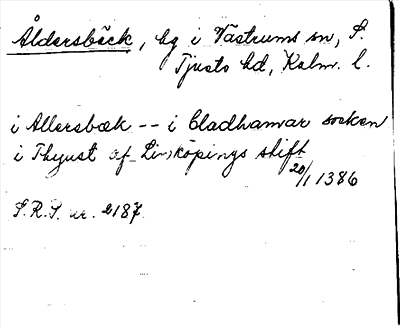 Åldersbäck, by i Västrums sn, S.
Tjusts hd, Kalm. l.
i Allersbæk -- i Cladhamar socken
i Thyust af Linköpings stift
20/1 1386
S.R.P. nr. 2187.